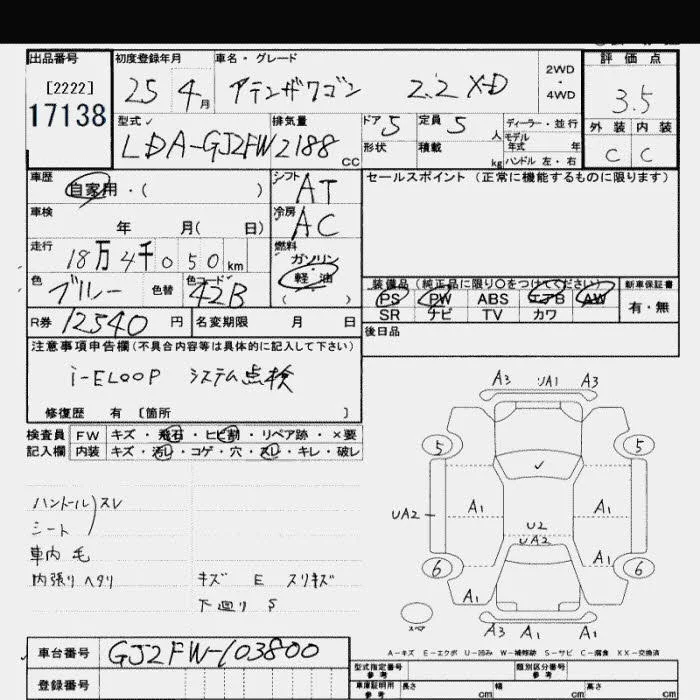 出品番号 初度登録年月 車名・グレード 評価点
[2222] 25 4月 アテンザワゴン 2.2 XD 2WD・4WD 3.5
17138
型式 排気量 ドア 5 定員 5人 ディーラー・並行 外装 内装
LDA-GJ2FW 2188cc 形状 積載 kg モデル年式 年 C C
ハンドル 左・右
車歴 シフト セールスポイント (正常に機能するものに限ります)
自家用・( ) AT
車検 冷房
年 月( 日) AC
走行 燃料
18万4千050km ガソリン
色 色替 色コード 軽油 装備品 (純正品に限り○をつけてください) 新車保証書
ブルー 42B ( ) PS PW ABS エアB AW 有・無
SR ナビ TV カワ
R券 12540円 名変期限 月 日 後日品
注意事項申告欄(不具合内容等は具体的に記入して下さい)
i-ELOOP システム点検
修復歴 有 [箇所 ]
検査員 FW キズ・飛石・ヒビ割・リペア跡・×要
記入欄 内装 キズ・汚レ・コゲ・穴・スレ・キレ・破レ
ハンドル スレ
シート
車内 毛
内張り ヘタリ キズ E スリキズ
下廻り S
A3 A1 A3
5 5
UA2 A1 A1
U2
UA2 A1
6 6
A1 A1
スペア
A3 A1 A1
A-キズ E-エクボ U-凹み W-補修跡 S-サビ C-腐食 XX-交換済
車台番号 GJ2FW-103800
型式指定番号 参考 類別区分番号 参考
登録番号 車庫証明用 参考 長さ cm 幅 cm 高さ cm